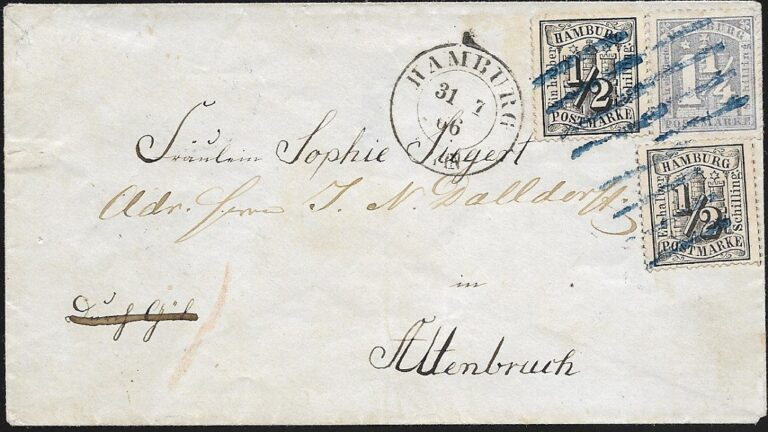 HAMBURG
Ein halber
1/2
Schilling
POSTMARKE
HAMBURG
1 1/4
Schilling
POSTMARKE
HAMBURG
31 7
66
HAMBURG
Ein halber
1/2
Schilling
POSTMARKE
Fräulein Sophie Siegert
Adr. Herrn J. N. Dalldorf
in
Altenbruch